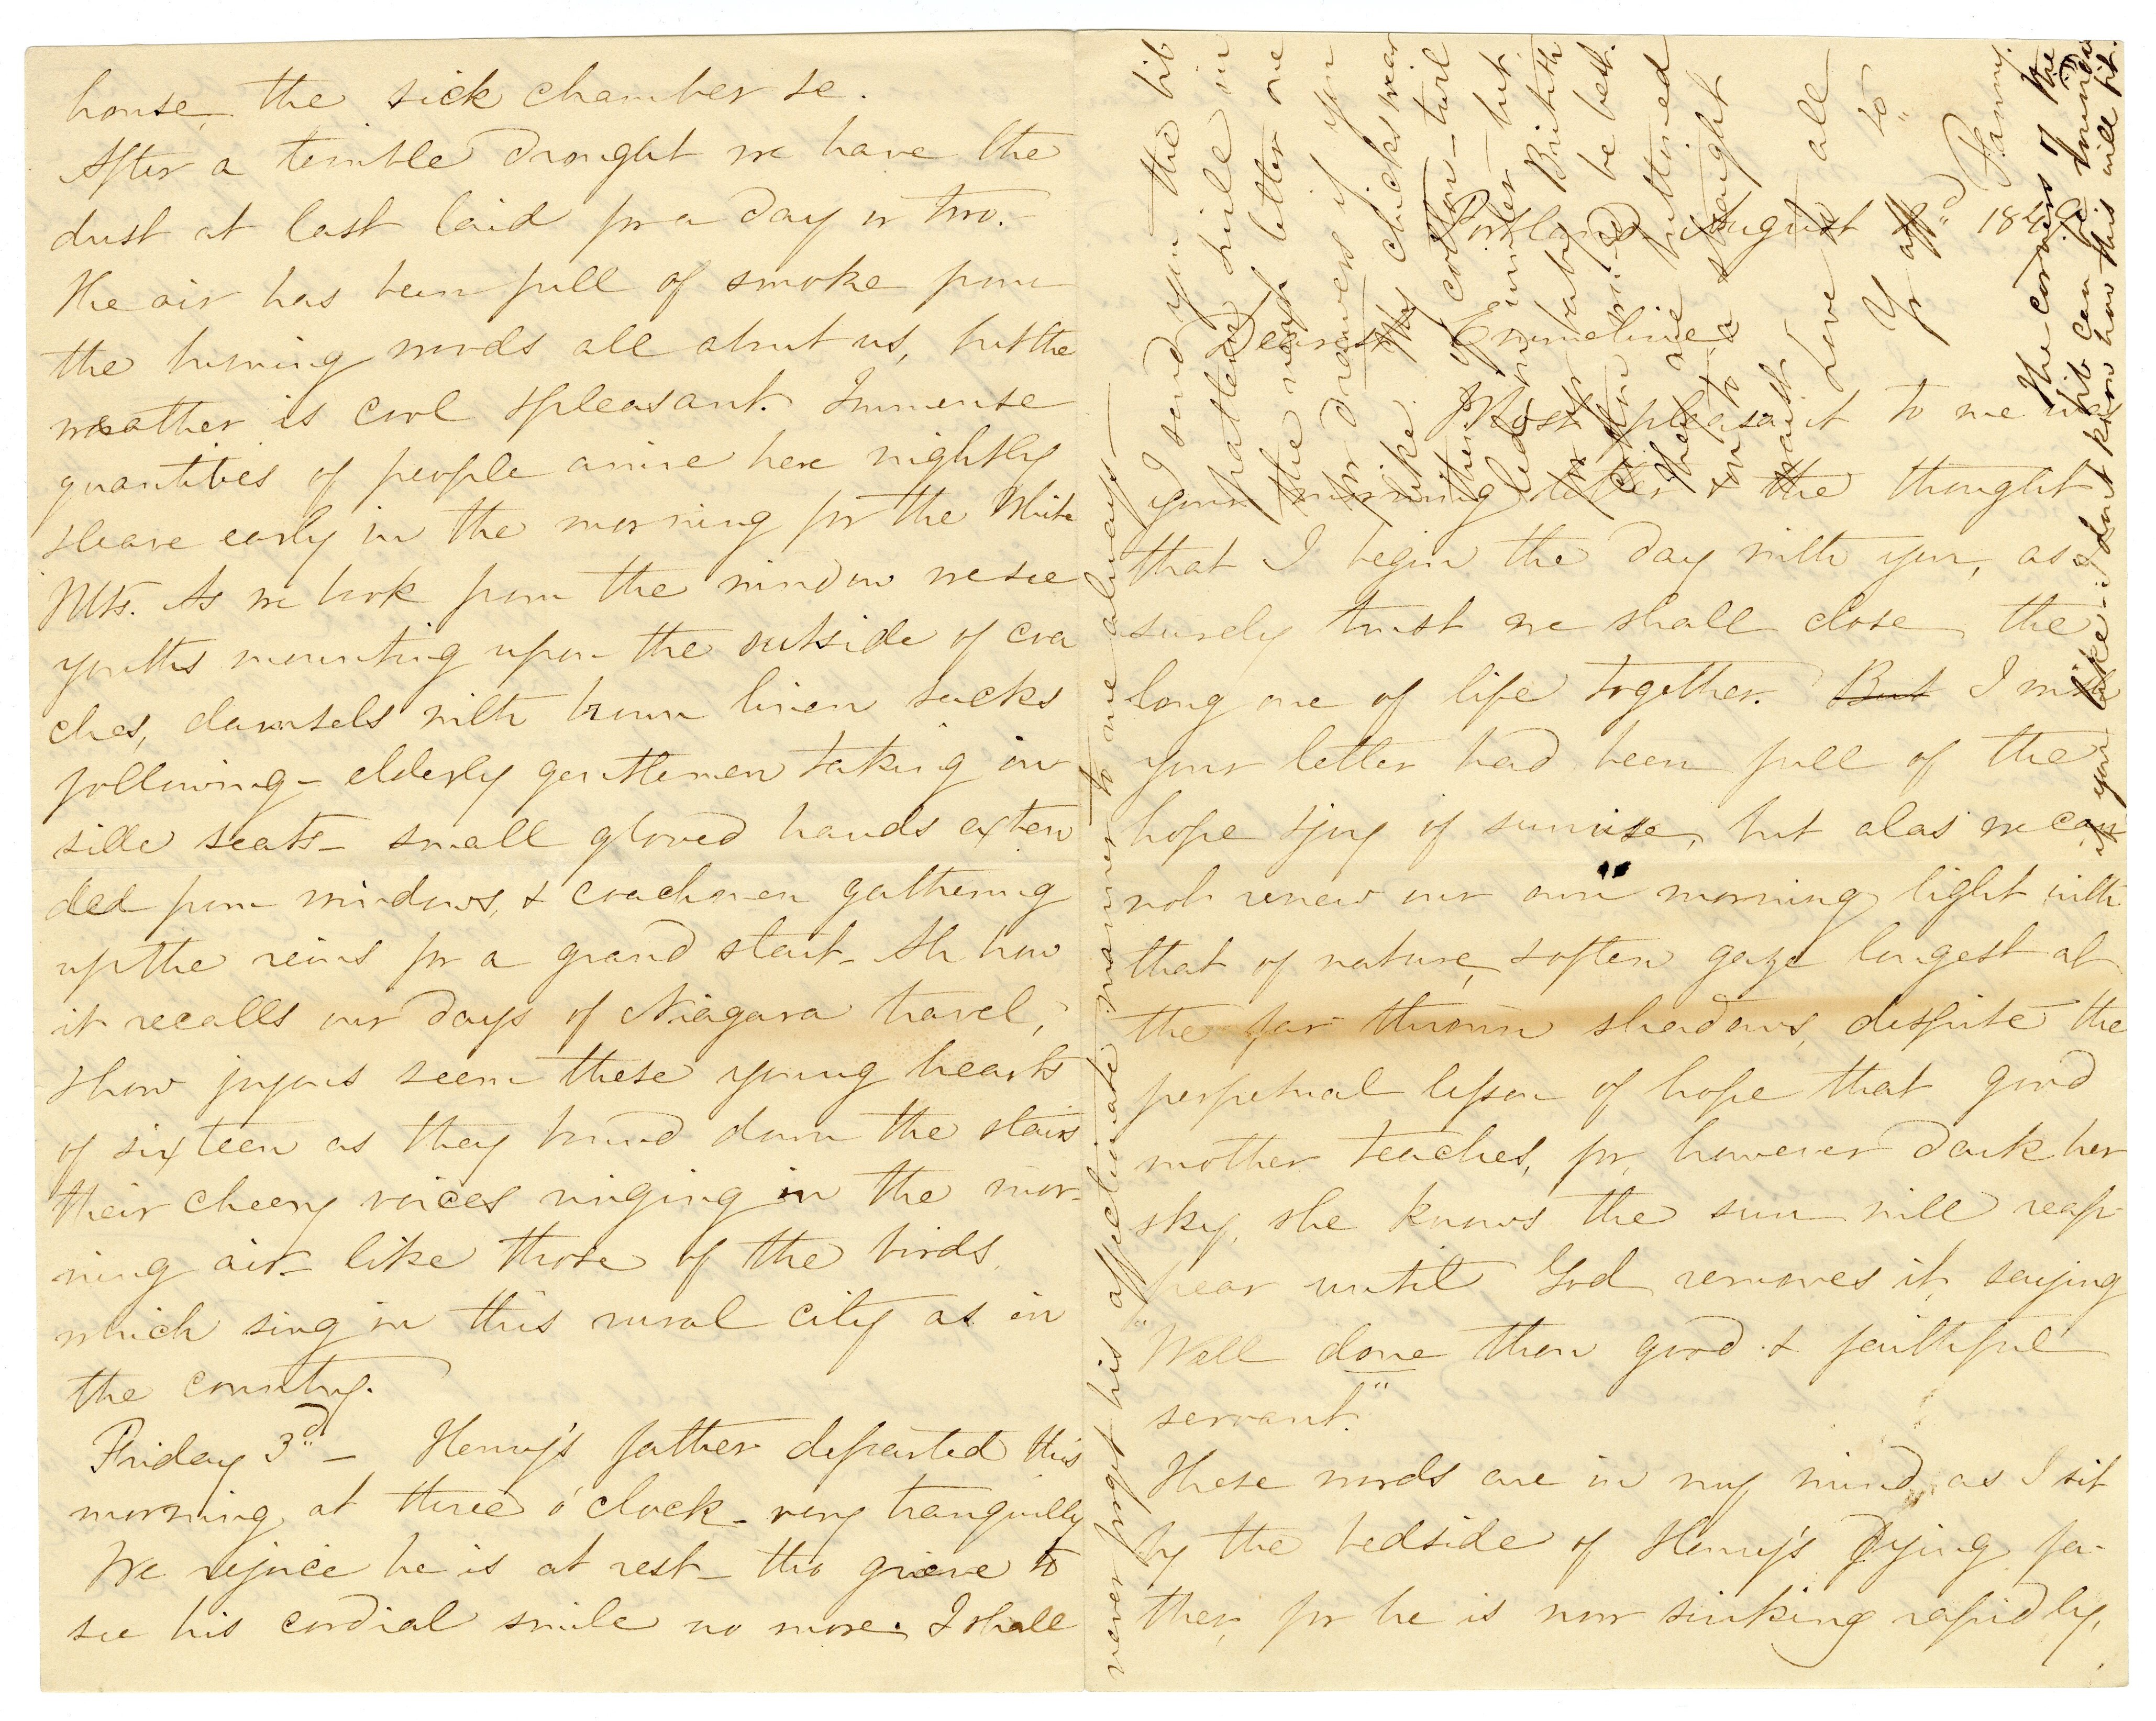 Portland, August 1849
Dearest Emmeline,
Most pleasant to me was
your morning letter & the thought
that I begin the day with you, as I
surely trust we shall close the
long one of life together. But I wish
your letter had been full of the
hope & joy of sunrise, but alas we can
not renew our own morning light with
that of nature, & often gaze longest at
the far thrown shadows, despite the
perpetual lesson of hope that good
mother teaches, for, however dark her
sky, she knows the sun will reap-
pear until God removes it, saying
"Well done thou good & faithful
servant."
These words are in my mind as I sit
by the bedside of Henry's dying fa-
ther, for he is now sinking rapidly,
house, the sick chamber &c.
After a terrible drought we have the
dust at last laid for a day or two.
The air has been full of smoke from
the burning woods all about us, but the
weather is cool & pleasant. Immense
quantities of people arrive here nightly
& leave early in the morning for the White
Mts. As we look from the window we see
youths mounting upon the outside of coa
ches, damsels with brown linen sacks
following - elderly gentlemen taking in
side seats - small gloved hands exten
ded from windows, & coachmen gathering
up the reins for a grand start - Ah how
it recalls our days of Niagara travel,
& how joyous seem these young hearts
of sixteen as they bound down the stairs
their cheery voices ringing in the mor-
ning air - like those of the birds,
which sing in this rural city as in
the country.
Friday 3"d - Henry's father departed this
morning at three o'clock - very tranquilly
We rejoice he is at rest - tho' grieve to
see his cordial smile no more. I shall
never forget his affectionate manner to me always -
I send you the bib
pattern & will in
the next letter one
for drawers if you
like. My chicks wear
them of cotton - twil
led in winter - but
for baby British
cotton would be best.
They are buttoned
on to a straight
waist
Love to all
Yr aff"d
Fanny.
The corners of the
bib can be rounded
if you like - I don't know how this will fit.